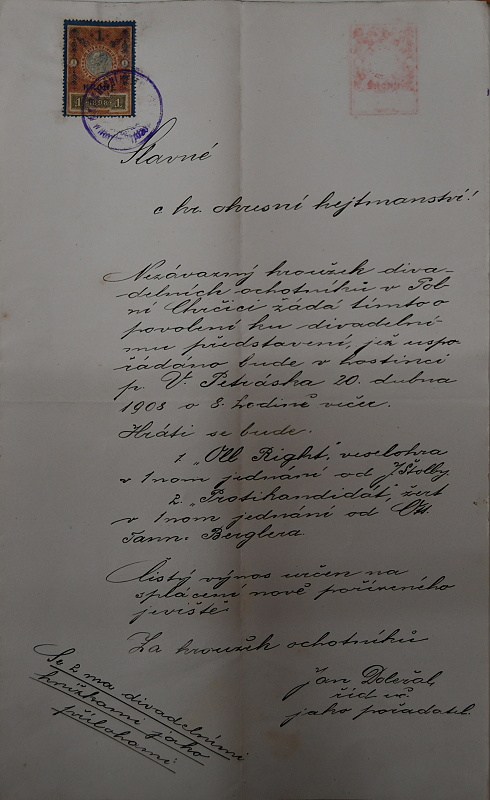 1 KRONE 1
1898
Slavné
c. kr. okresní hejtmanství!
Nezávazný kroužek diva-
delních ochotníků v Dol
ní Chrčici žádá tímto o
povolení ku divadelní-
mu představení, jež uspo
řádáno bude v hostinci
p. V. Petráska 20. dubna
1908 o 8. hodině večer.
Hráti se bude.
1. „Oll Right", veselohra
v 1nom jednání od J. Štolby
2. „Protikandidát", žert
v 1nom jednání od Ott.
Fann. Berglera.
Čistý výnos určen na
splácení nově pořízeného
jeviště.
Za kroužek ochotníků
Jan Doležal,
říd. uč.
jako pořadatel.
Se 2 ma divadelními
knížkami jako
přílohami